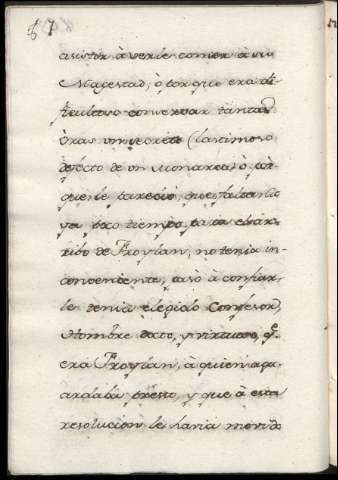 7
asistir à verle comer à su
Magestad; ò porque era difi-
cultoso conservar tantas
òras un secreto (lastimoso
defecto de un Monarca) ò por
que le pareció, que faltando
ya poco tiempo para el
de Froylan, no tenia in-
conveniente, pasò à confiar-
le tenia elegido Confesor,
Hombre docto, y virtuoso, q.e
era Froylan, à quien agu-
ardaba presto, y que à esta
resolucion le havia movido